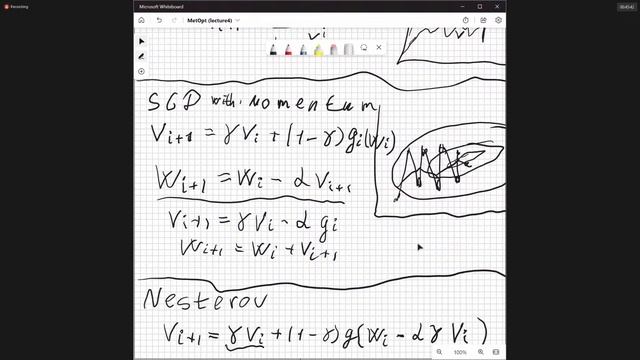 Recording
00:45:42
Microsoft Whiteboard
MetOpt (lecture4)
SGD with. Nomentum
V_{i+1} = γ V_i + (1 - γ) g_i(W_i)
W_{i+1} = W_i - α V_{i+1}
V_{i+1} = γ V_i - α g_i
W_{i+1} = W_i + V_{i+1}
Nesterov
V_{i+1} = γ V_i + (1 - γ) g(W_i - α γ V_i)
100%